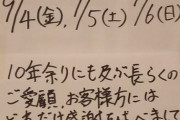 9/4(金), 9/5(土) 9/6(日)
10年余りにも及ぶ長らくの
ご愛顧、お客様方には